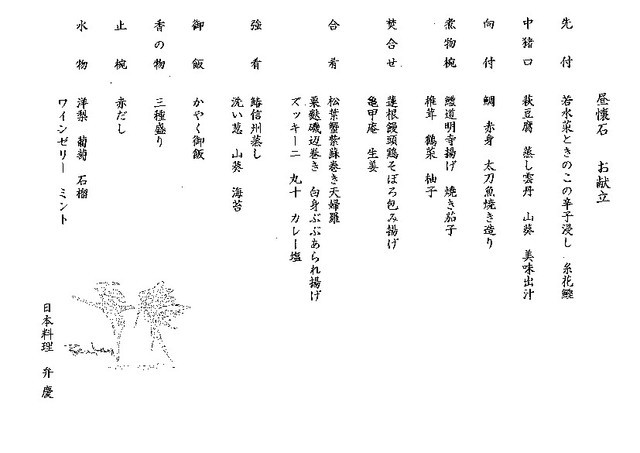 昼懐石 お献立
先付 若水菜ときのこの辛子浸し 糸花鰹
中猪口 萩豆腐 蒸し雲丹 山葵 美味出汁
向付 鯛 赤身 太刀魚焼き造り
煮物椀 鱧道明寺揚げ 焼き茄子
椎茸 鶴菜 柚子
焚合せ 蓮根饅頭鶏そぼろ包み揚げ
亀甲庵 生姜
合肴 松葉蟹紫蘇巻き天婦羅
粟麩磯辺巻き 白身ぶぶあられ揚げ
ズッキーニ 丸十 カレー塩
強肴 鰆信州蒸し
洗い葱 山葵 海苔
御飯 かやく御飯
香の物 三種盛り
止椀 赤だし
水物 洋梨 葡萄 石榴
ワインゼリー ミント
日本料理 弁慶